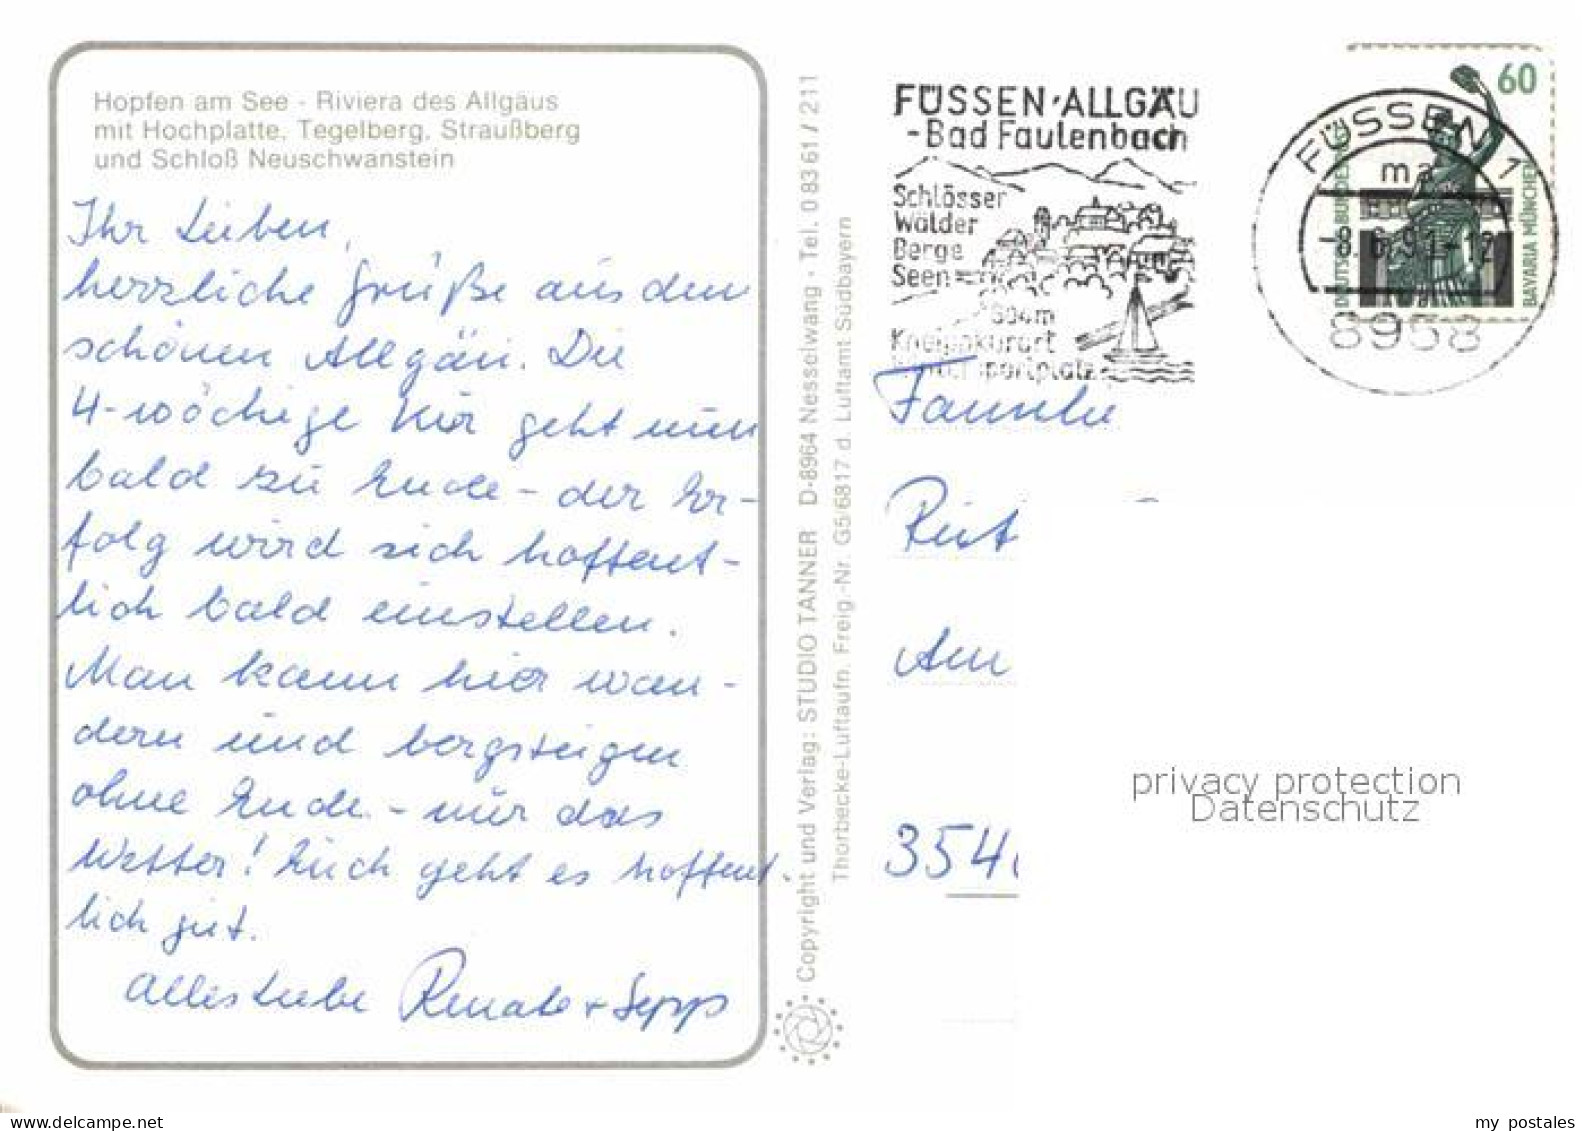 Hopfen am See - Riviera des Allgäus
mit Hochplatte, Tegelberg, Straußberg
und Schloß Neuschwanstein
Ihr Lieben,
herzliche Grüße aus dem
schönen Allgäu. Die
4-wöchige Kur geht nun
bald zu Ende - der Er-
folg wird sich hoffent-
lich bald einstellen.
Man kann hier wan-
dern und bergsteigen
ohne Ende - nur das
Wetter! Euch geht es hoffent-
lich gut.
Alles Liebe Renate + Sepp
Copyright und Verlag: STUDIO TANNER D-8964 Nesselwang · Tel. 0 83 61 / 211
Thorbecke-Luftaufn. Freig.-Nr. G5/6817 d. Luftamt Südbayern
FÜSSEN·ALLGÄU
-Bad Faulenbach
Schlösser
Wälder
Berge
Seen
800m
Kneippkurort
Wintersportplatz
FÜSSEN 1
ma
-8.6.91-12
8958
60
DEUTSCHE BUNDESPOST
BAVARIA MÜNCHEN
Familie
Am
354
privacy protection
Datenschutz
my postales